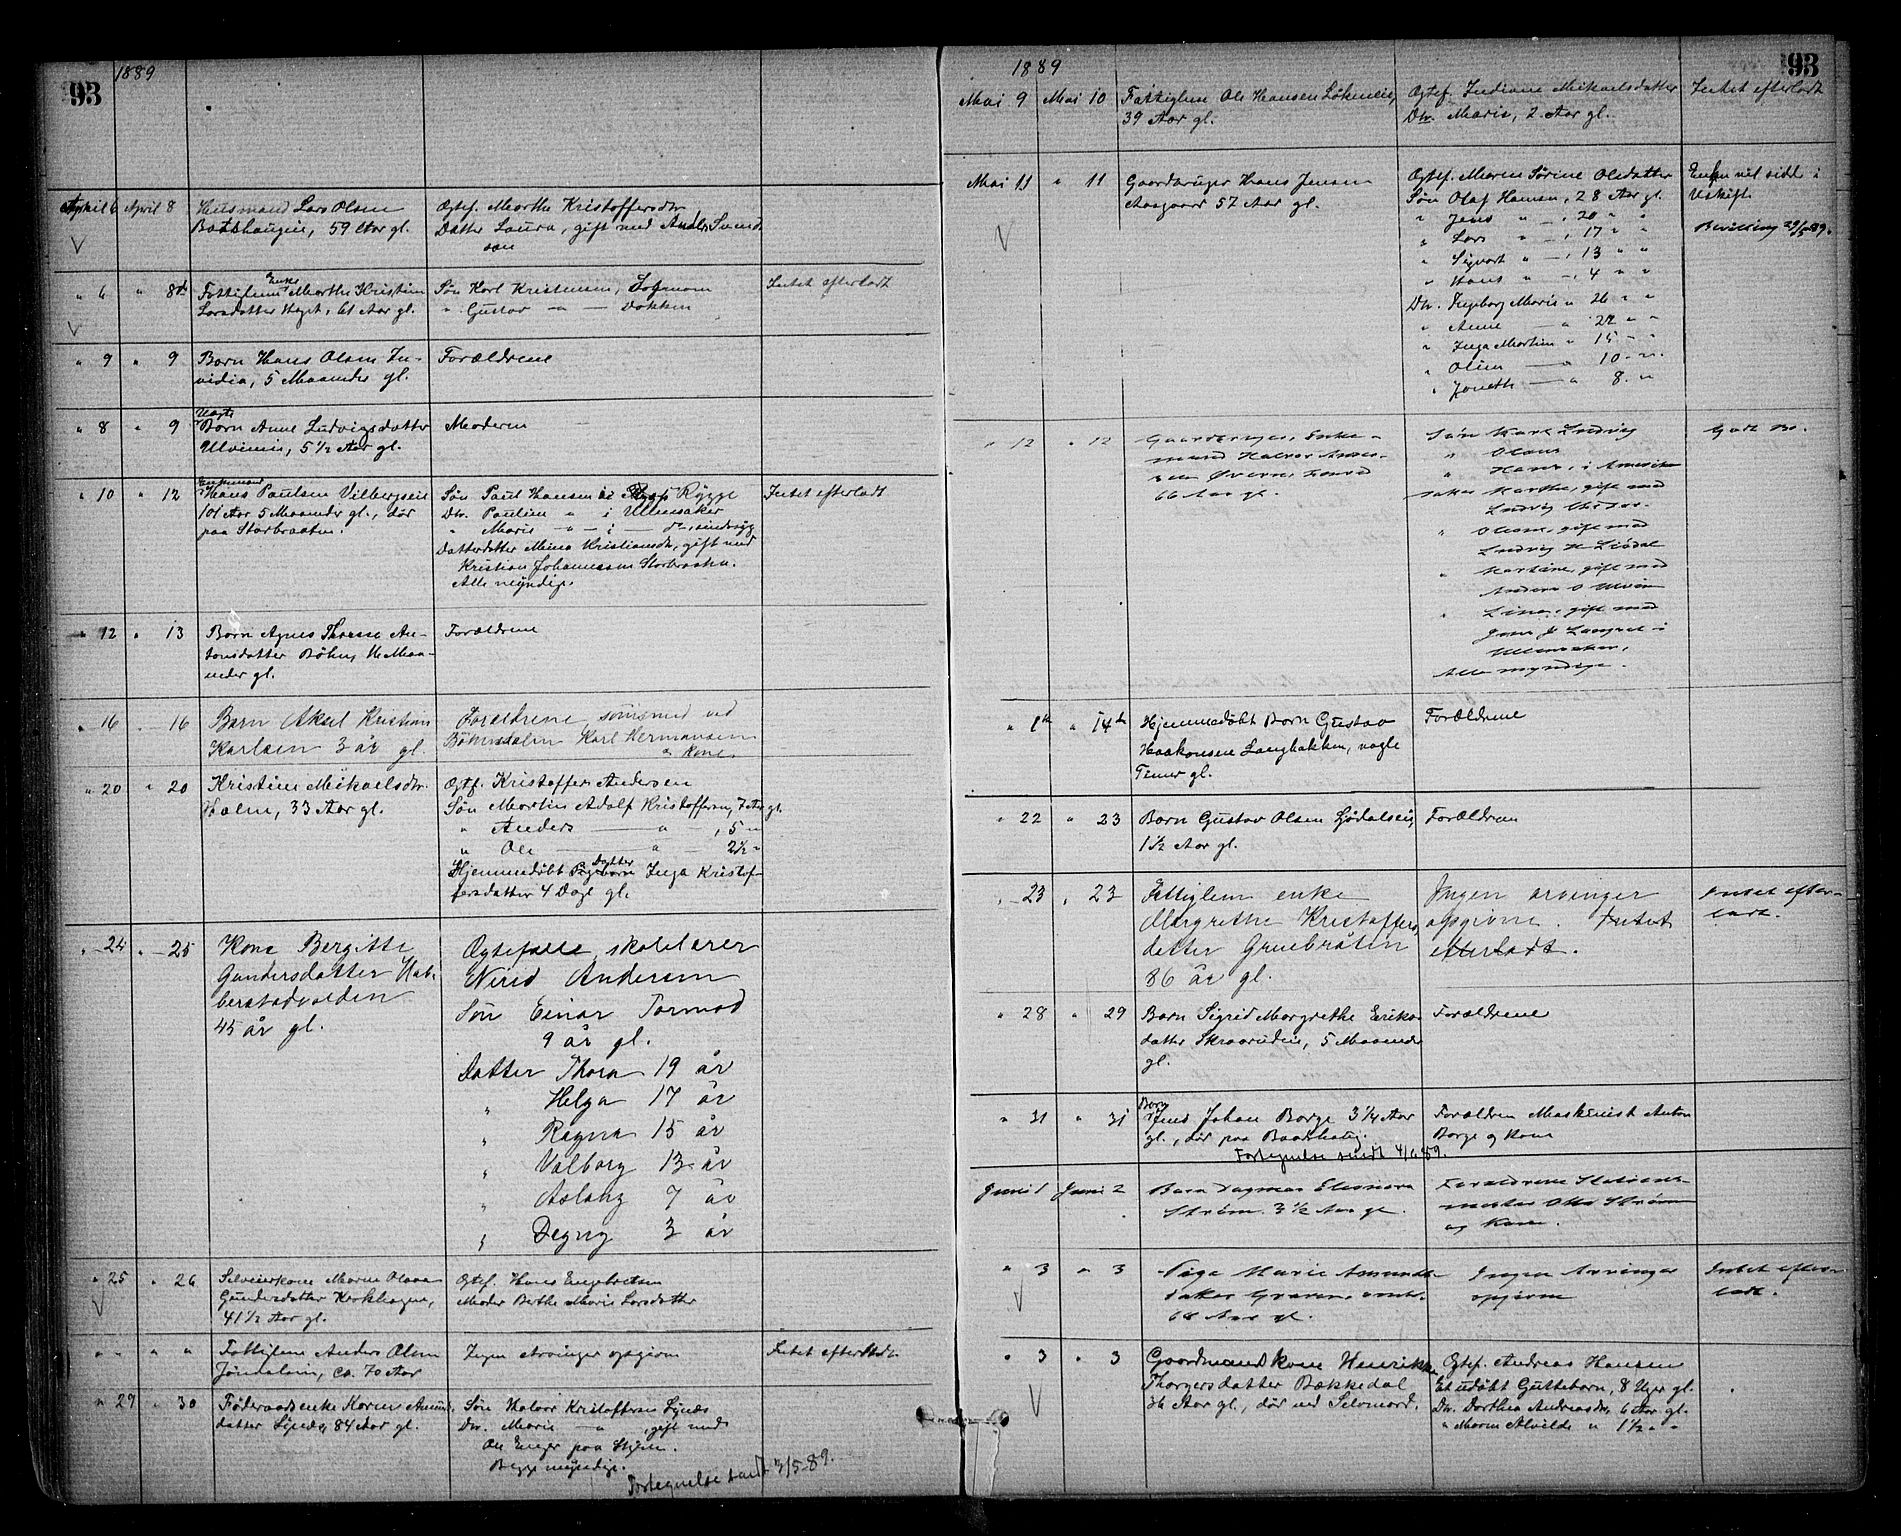 93
1889
April 6 April 8 Husmand Lars Olsen
59 Aar gl.
Ogtef. Marthe Kristoffersdtr.
Datter Laura, gift med Anders Svend
sen
" 6 " 8de Fattiglem Enke Marthe Kristine
Larsdatter Haget, 61 Aar gl.
Søn Karl Kristensen,
" Gustav — " — Dokken
Intet efterladt
" 9 " 9 Barn Hans Olsen In-
vidia, 5 Maaneder gl.
Forældrene
" 8 " 9 Uægte
Barn Anne Ludvigsdatter
Ulvimie, 5 1/2 Aar gl.
Moderen
" 10 " 12 Enkemand
Hans Paulsen Vilbergseie
101 Aar 5 Maaneder gl., død
paa Storbraaten.
Søn Paul Hansen i Rygge
Dtr. Pauline " i Ullensaker
" Marie — " — i — do, sindssyg
Datterdatter Mina Kristiansdtr., gift med
Kristian Johannessen Storbraaten.
Alle myndige.
Intet efterladt
" 12 " 13 Barn Agnes Therese An-
tonsdatter Bøhn, Maa-
neder gl.
Forældrene
" 16 " 16 Barn Aksel Kristian
Karlsen 3 år gl.
Forældrene, ved
Bøhnsdalen Karl Hermansen
o Kone.
" 20 " 20 Kristine Mikaelsdtr.
Holm, 33 Aar gl.
Ogtf. Kristoffer Andersen
Søn Martin Adolf Kristoffersen, 7 Aar gl.
" Anders — " — , 5 "
" Ole — " — 2 1/2 "
Datter
Hjemmedøbt Pigebarn Inga Kristof-
fersdatter 4 Dage gl.
" 24 " 25 Kone Bergitte
Gundersdatter Hab-
berstadvolden
45 år gl.
Ogtefælle, skolelærer
Nirid Andersen
Søn Einar Tormod
9 år gl.
Datter Thora 19 år
" Helga 17 år
" Ragna 15 år
" Valborg 13 år
" Aslaug 7 år
" Dagny 3 år
" 25 " 26 Selveierkone Maren Olava
Gundersdatter Kerkhagen,
41 1/2 Aar gl.
Ogtef. Hans Engebretsen
Moder Berthe Marie Larsdatter
" " " " Fattiglem Anders Olsen
Jøndalen, ca. 70 Aar
Ingen Arvinger opgivne
Intet efterladt.
" 29 " 30 Føderaadsenke Karen Amund
datter Lynæs, 84 Aar gl.
Søn Halvor Kristoffersen Lynæs
Dtr. Marie " , gift med
Ole Enger paa
Begge myndige.
Fortegnelse sendt 3/5-89.
93
1889
Mai 9 Mai 10 Fattiglem Ole Hansen Løkeneie,
39 Aar gl.
Ogtef. Indiane Mikaelsdatter
Dtr. Marie, 2 Aar gl.
Intet efterladt
Mai 11 " 11 Gaardbruger Hans Jensen
Aasgaard 57 Aar gl.
Ogtef. Maren Sørine Olsdatter
Søn Olaf Hansen, 28 Aar gl.
" Jens " — , 20 " "
" Lars " — , 17 " "
" Sigvart " — , 13 " "
" Hans " — , 4 " "
Dtr. Ingeborg Marie " 26 " "
" Anne — " 22 " "
" Inga Martine " 15 " "
" Oline — " 10 " "
" Jonette — " 8 " "
Enken vil sidde i
Uskifte
Bevilling 29/5 89.
" 12 " 12 Gaardbruger, Enke-
mand Halvor
66 Aar gl.
Søn Karl Ludvig
" Olaus
" Hans, i Amerika
Datter Marthe, gift med
Ludvig
" Oleane, gift med
Ludvig H Liødal
" Martine, gift med
Anders O Ulvin
" Line, gift med
Jens J i
Ullensaker,
Alle myndige.
Godt Bo.
" " 14de Hjemmedøbt Barn Gustav
Haakonsen Langbakken, nogle
Timer gl.
Forældrene
" 22 " 23 Barn Gustav Olsen Ljødalseie,
1 1/2 Aar gl.
Forældrene
" 23 " 23 Fattiglem enke
Margrethe Kristoffers
datter Gruebråten
86 år gl.
Ingen arvinger
opgivne. Intet
efterladt.
Intet efter-
ladt.
" 28 " 29 Barn Sigrid Margrethe Eriks
datter Skraarudeie, 5 Maaneder
gl.
Forældrene
" 31 " 31 Barn
Jens Johan Borge 3 1/4 Aar
gl., dør paa
Forældrene Maskinist Anton
Borge og Kone
Fortegnelse sendt 4/6 89.
Juni 1 Juni 2 Barn Dagmar Eleonora
Strøm 3 1/2 Aar gl.
Forældrene Stations-
mester Otto Strøm
og Kone.
" 3 " 3 Pige Marie Amunds-
datter
68 Aar gl.
Ingen Arvinger
opgivne
Intet efter-
ladt.
" 3 " 3 Gaardmandskone Henrikke
Thorgersdatter Bækkedal
36 Aar gl., dør ved Selvmord.
Ogtef. Andreas Hansen
Et udøbt Guttebarn, 8 Uger gl.
Dtr. Dorthea Andreasdtr., 6 Aar gl.
" Maren Alvilde " 1 1/2 " "